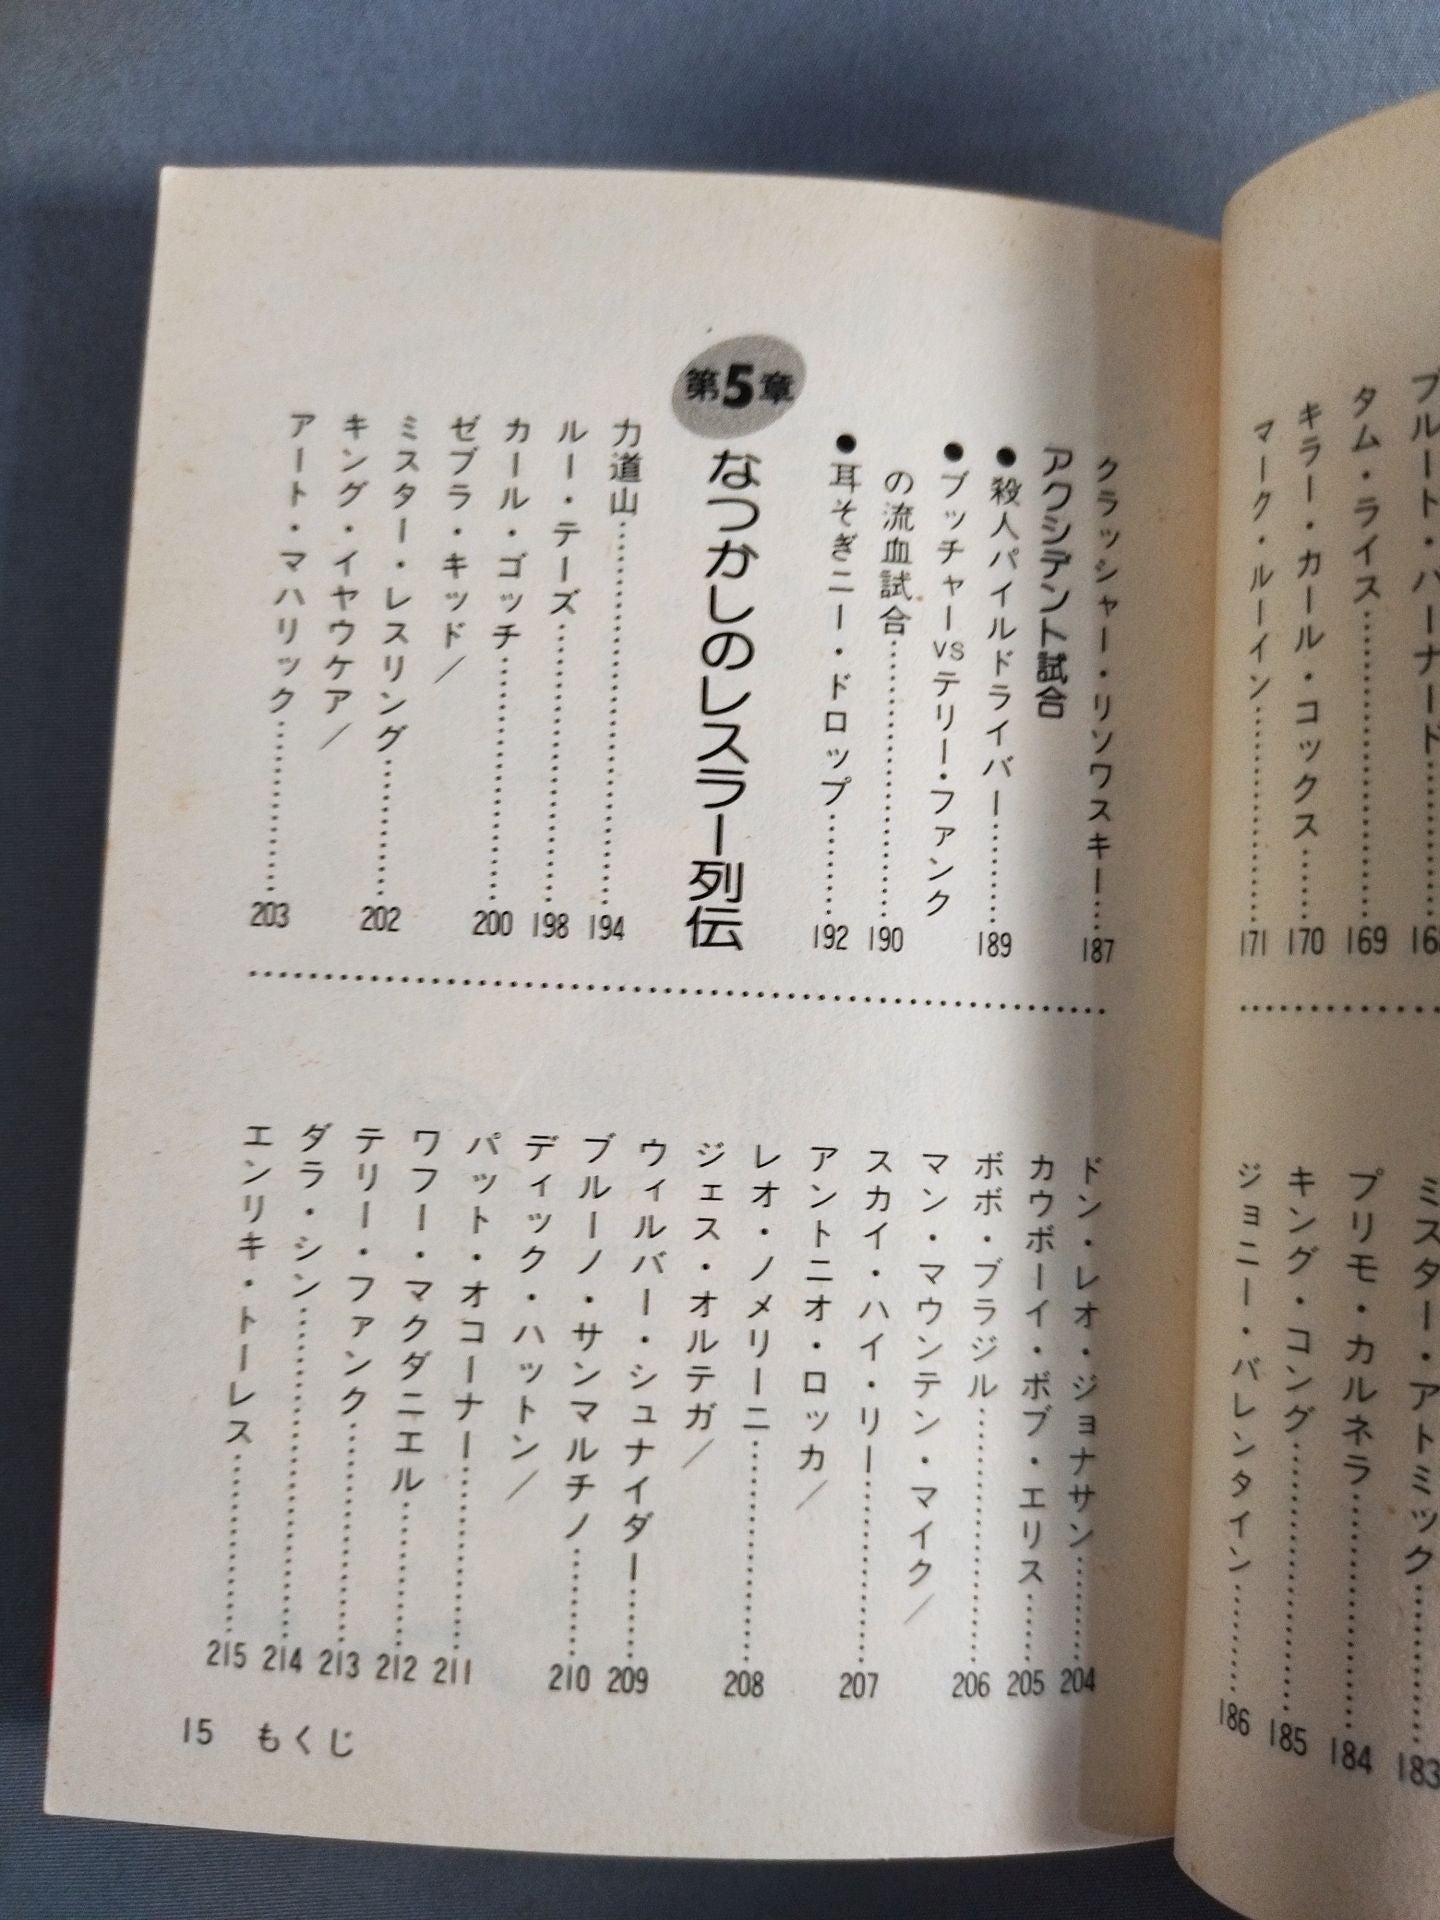 タム・ライス…………169
キラー・カール・コックス……170
マーク・ルーイン…………171
プリモ・カルネラ…………184
キング・コング…………185
ジョニー・バレンタイン………186
クラッシャー・リソワスキー…187
アクシデント試合
●殺人パイルドライバー……189
●ブッチャーVSテリー・ファンク
の流血試合…………190
●耳そぎニー・ドロップ……192
第5章
なつかしのレスラー列伝
力道山…………194
ルー・テーズ…………198
カール・ゴッチ…………200
ゼブラ・キッド／
ミスター・レスリング………202
キング・イヤウケア／
アート・マハリック………203
ドン・レオ・ジョナサン……204
カウボーイ・ボブ・エリス……205
ボボ・ブラジル…………206
マン・マウンテン・マイク／
スカイ・ハイ・リー………207
アントニオ・ロッカ／
レオ・ノメリーニ…………208
ジェス・オルテガ／
ウィルバー・シュナイダー……209
ブルーノ・サンマルチノ……210
ディック・ハットン／
パット・オコーナー………211
ワフー・マクダニエル………212
テリー・ファンク…………213
ダラ・シン…………214
エンリキ・トーレス………215
15 もくじ